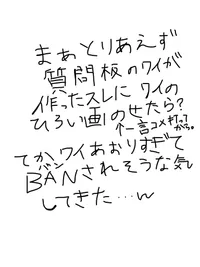 まぁとりあえず
質問板のワイが
作ったスレに ワイの
ひろい画のせたら?
↑一言コメ打ってから。
てか、ワイあおりすぎて
BANされそうな気
バン
してきた…w